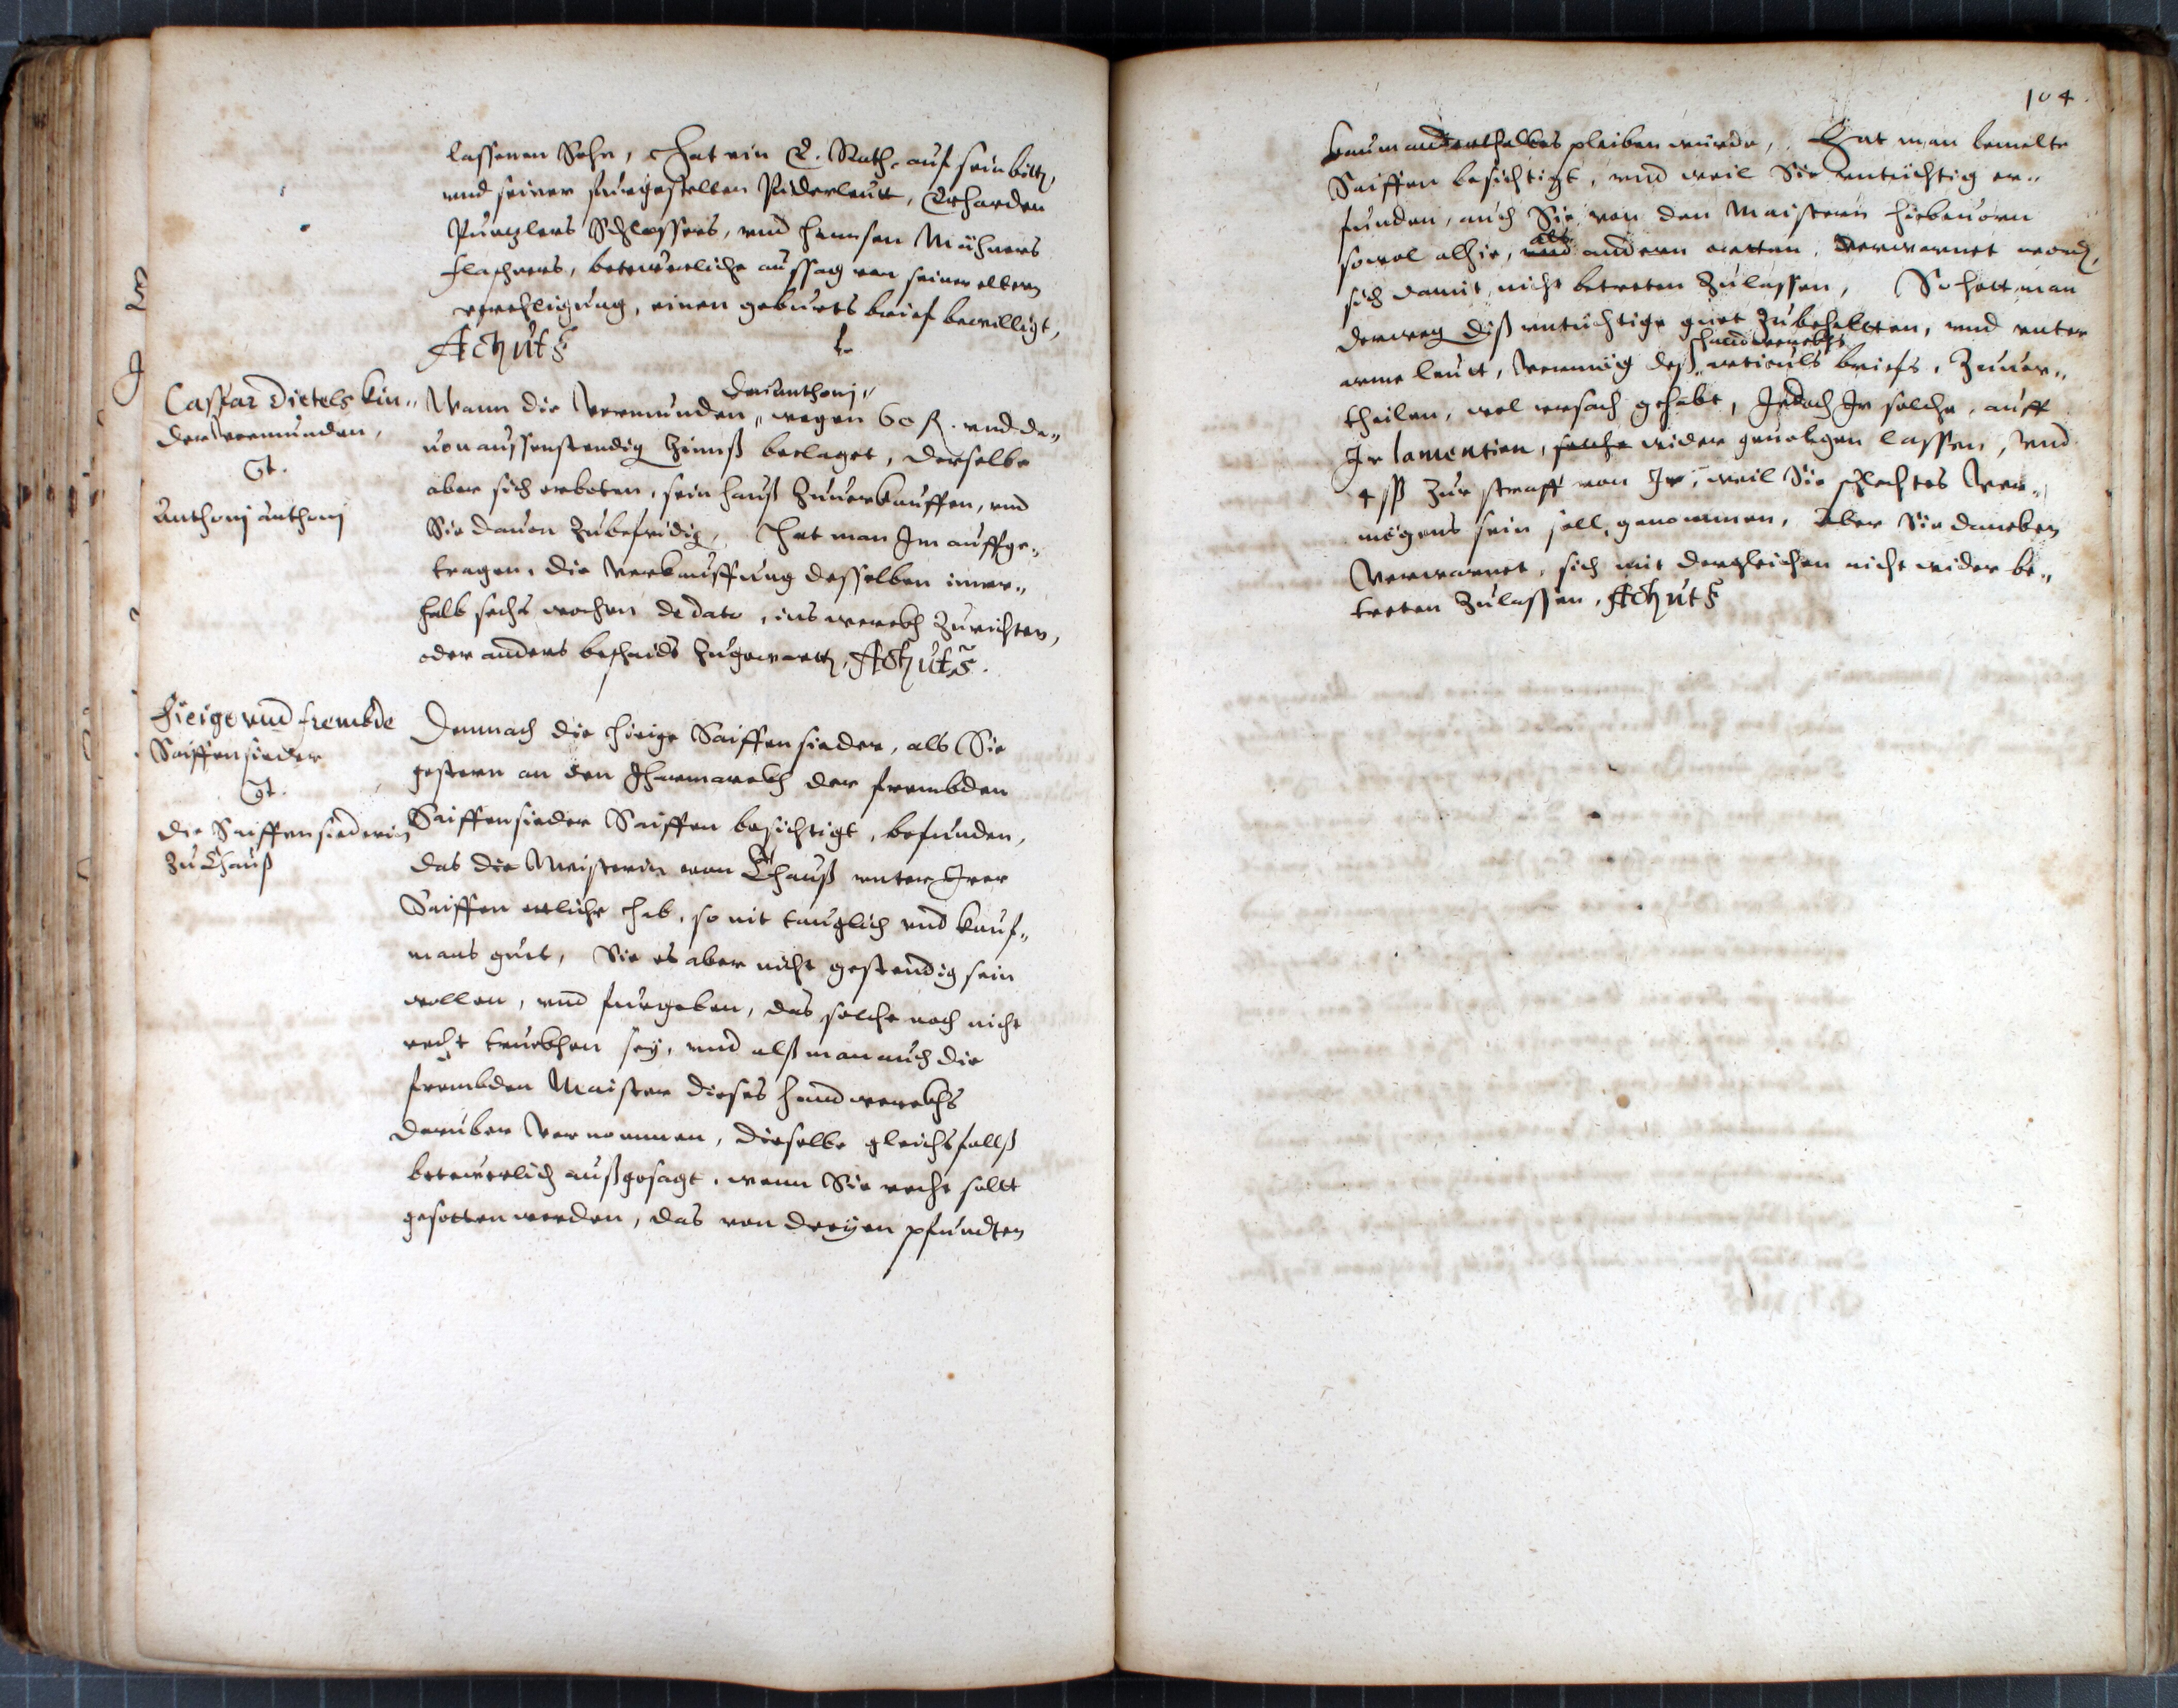 lassenen Sohn, Hat ein E. Rath, auf sein bitt,
vnd seiner furgestelten Piderleutt, Erharden
Purglers Schlossers, vnd Hannsen
flaschners, betewerliche aussag von seiner eltern
verehligung, einen geburts brief bewilligt,
Act: ut s:
Caspar Dietels kin„
der vormunden,
Ct.
Anthonj Anthonj
den Anthonj„
Wann die Vormunden„ wegen 60 fl. vnd da„
uon aussenstendig Zinnß beclaget, derselbe
aber sich erboten, sein hauß Zuuerkauffen, vnd
Sie dauon Zubefridig, Hat man Im auffge„
tragen, die Verkauffung desselben inner„
halb sechs wochen de dato, ins werckh Zurichten,
oder anders beschaids Zugewartt, Act: ut s:
Hieige vnd frembde
Saiffensieder
Ct.
die Saiffensiederin
zu Thauß
Demnach die hieige Saiffensieder, als Sie
gestern an den Jharmarckh der frembden
Saiffensieder Saiffen besichtigt, befunden,
das die Meisterin von Thauß vnter Irer
Saiffen etliche hab, so nit tauglich vnd kauf„
mans guet, Sie es aber nicht gestendig sein
wollen, vnd furgeben, das solche noch nicht
recht truckhen sey, vnd alß man auch die
frembden Maister dieses handwerckhs
daruber Vernommen, dieselbe gleichsfallß
betewerlich außgesagt, wenn Sie recht sollt
gesotten werden, das von dreyen pfundten
104.
kaum anderthalbes pleiben wurde, Hat man bemelte
Saiffen besichtigt, vnd weil Sie vntuchtig er„
funden, auch Sie von den Maistern hiebeuorn
sowol alhie, vnd als andern ortten, verwarnet word,
sich damit nicht betreten Zulassen, So hett man
derweg diß vntuchtige guet Zubehaltten, vnd vnter
handwerckhs
arme leutt, Vermög deß articuls briefs, Zuuer„
theilen, wol vrsach gehabt, Jedoch Ir solche, auff
Ir lamentirn, solche wider geuolgen lassen, vnd
4 ß Zur straff von Ir, weil Sie schlechtes Ver„
mögens sein soll, genommen, Aber Sie daneben
Verwarnet, sich mit dergleichen nicht wider be„
treten Zulassen, Act: ut s: